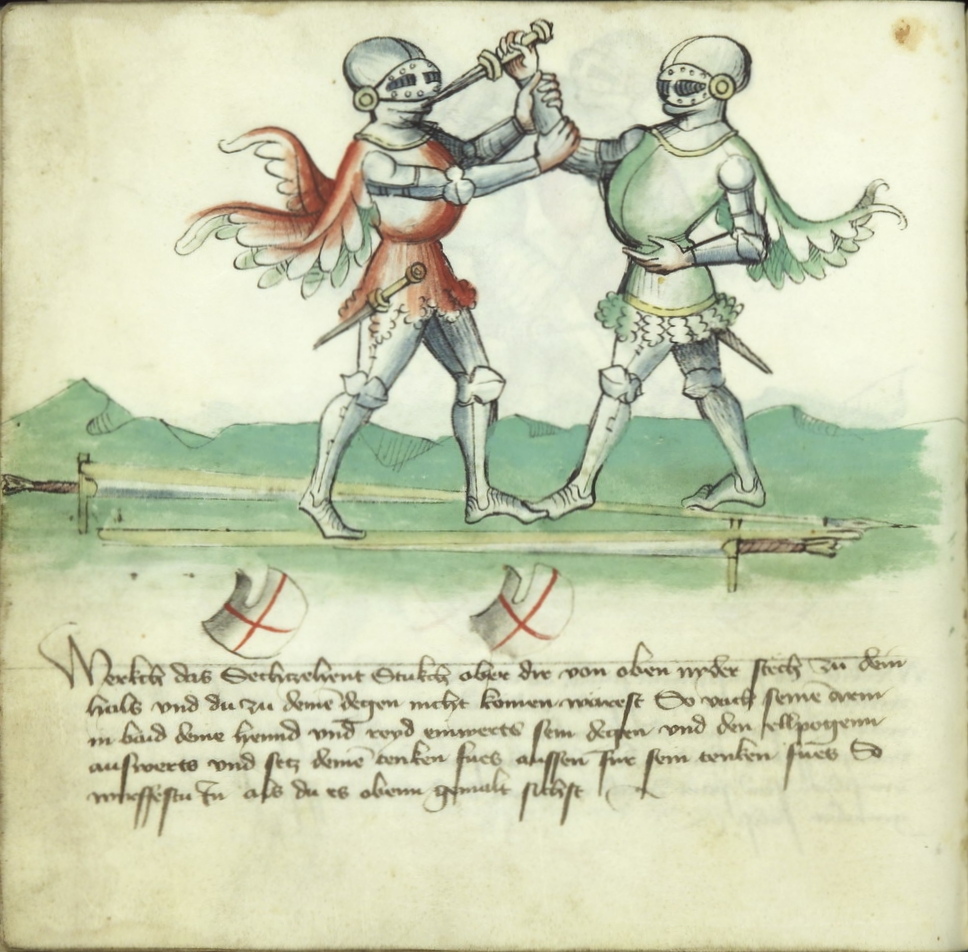 Merkch das Sechczehent Stukch ober dir von oben nyder stech zu dem
hals und du zu deinē degen nicht komen warest So vach seinē arem
in baid deine hennd und reyd einwerts sein degen und den ellpogenn
auswerts und setz deinē tenken fues aussen für sein tenken fues So
wirffestu In als du es obenn gemalt sichst